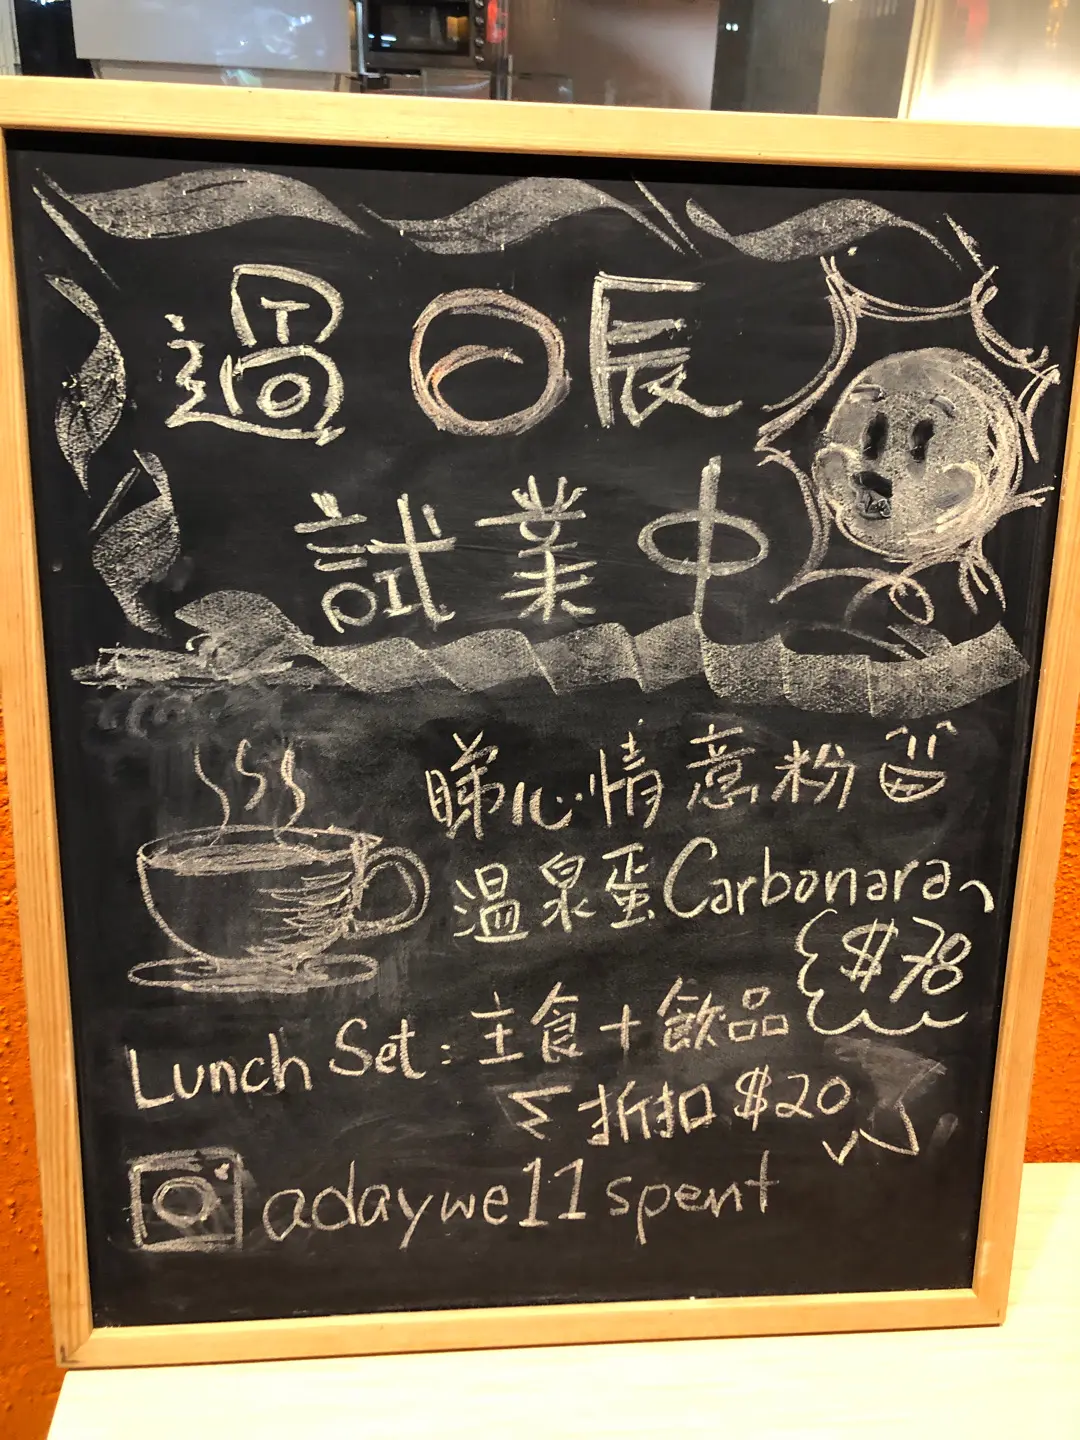 過日辰
試業中
睇心情意粉
溫泉蛋Carbonara
$78
Lunch Set: 主食+飲品
折扣$20
adaywe11spent